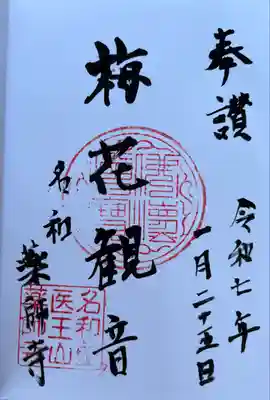 奉讃
令和七年
一月二十五日
梅花観音
名和
薬師寺
名和
医王山